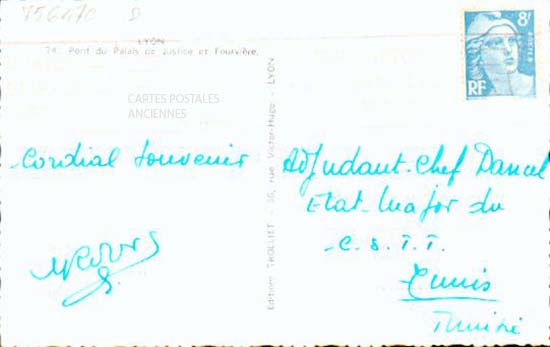 756470
LYON
74. Pont du Palais de Justice et Fourvière.
8F
POSTES
RF
CARTES POSTALES
ANCIENNES
Cordial souvenir
Editions TROLLIET - 36, rue Victor-Hugo - LYON
Adjudant-Chef
Etat-Major du
C.S.T.T.
Tunis
Tunisie